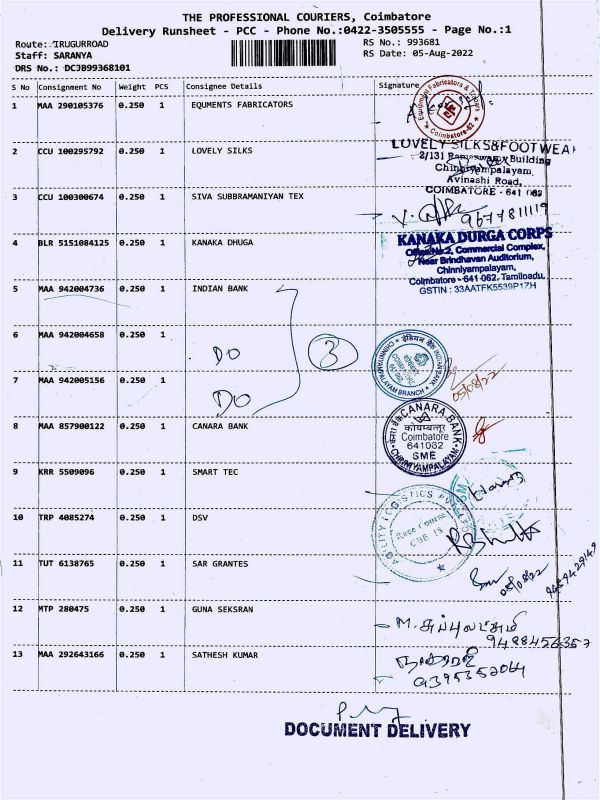 THE PROFESSIONAL COURIERS, Coimbatore
Delivery Runsheet - PCC - Phone No.:0422-3505555 - Page No.:1
Route: IRUGURROAD
RS No.: 993681
Staff: SARANYA
RS Date: 05-Aug-2022
DRS No.: DCJB99368101
S No Consignment No Weight PCS Consignee Details Signature
1 MAA 290105376 0.250 1 EQUMENTS FABRICATORS
Equipment Fabricators & Traders
Coimbatore-62
2 CCU 100295792 0.250 1 LOVELY SILKS
LOVELY SILKS&FOOTWEAR
2/131 Ramaswamy Building
Chinniyampalayam,
Avinashi Road,
COIMBATORE - 641 062
3 CCU 100300674 0.250 1 SIVA SUBBRAMANIYAN TEX
9677811119
4 BLR 5151084125 0.250 1 KANAKA DHUGA
KANAKA DURGA CORPS
Office No.2, Commercial Complex,
Near Brindhavan Auditorium,
Chinniyampalayam,
Coimbatore - 641 062. Tamilnadu,
GSTIN : 33AATFK5539P1ZH
5 MAA 942004736 0.250 1 INDIAN BANK
6 MAA 942004658 0.250 1
DO
3
INDIAN BANK
इंडियन बैंक
CHINNIYAMPALAYAM BRANCH
05/08/22
7 MAA 942005156 0.250 1
DO
8 MAA 857900122 0.250 1 CANARA BANK
केनरा बैंक CANARA BANK
कोयम्बत्तूर
Coimbatore
641062
SME
CHINNIYAMPALAYAM
9 KRR 5509096 0.250 1 SMART TEC
10 TRP 4085274 0.250 1 DSV
AGILITY LOGISTICS PVT
Race Course
CBE-18
11 TUT 6138765 0.250 1 SAR GRANTES
05/08/22
9659429149
12 MTP 280475 0.250 1 GUNA SEKSRAN
M. சுப்புலட்சுமி
9488456357
13 MAA 292643166 0.250 1 SATHESH KUMAR
9395352064
DOCUMENT DELIVERY